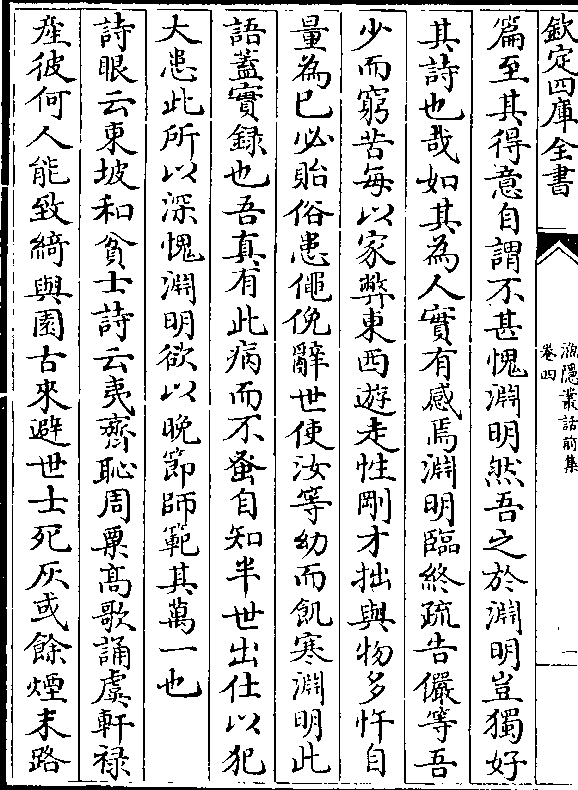 欽定四庫全書
漁隱叢話前集
卷四
一
篇至其得意自謂不甚愧淵明然吾之於淵明豈獨好
其詩也哉如其為人實有感焉淵明臨終疏告儼等吾
少而窮苦每以家弊東西遊走性剛才拙與物多忤自
量為已必貽俗患僶俛辭世使汝等幼而飢寒淵明此
語蓋實錄也吾真有此病而不蚤自知半世出仕以犯
大患此所以深愧淵明欲以晚節師範其萬一也
詩眼云東坡和貧士詩云夷齊恥周粟髙歌誦虞軒禄
産彼何人能致綺與園古來避世士死灰或餘煙末路